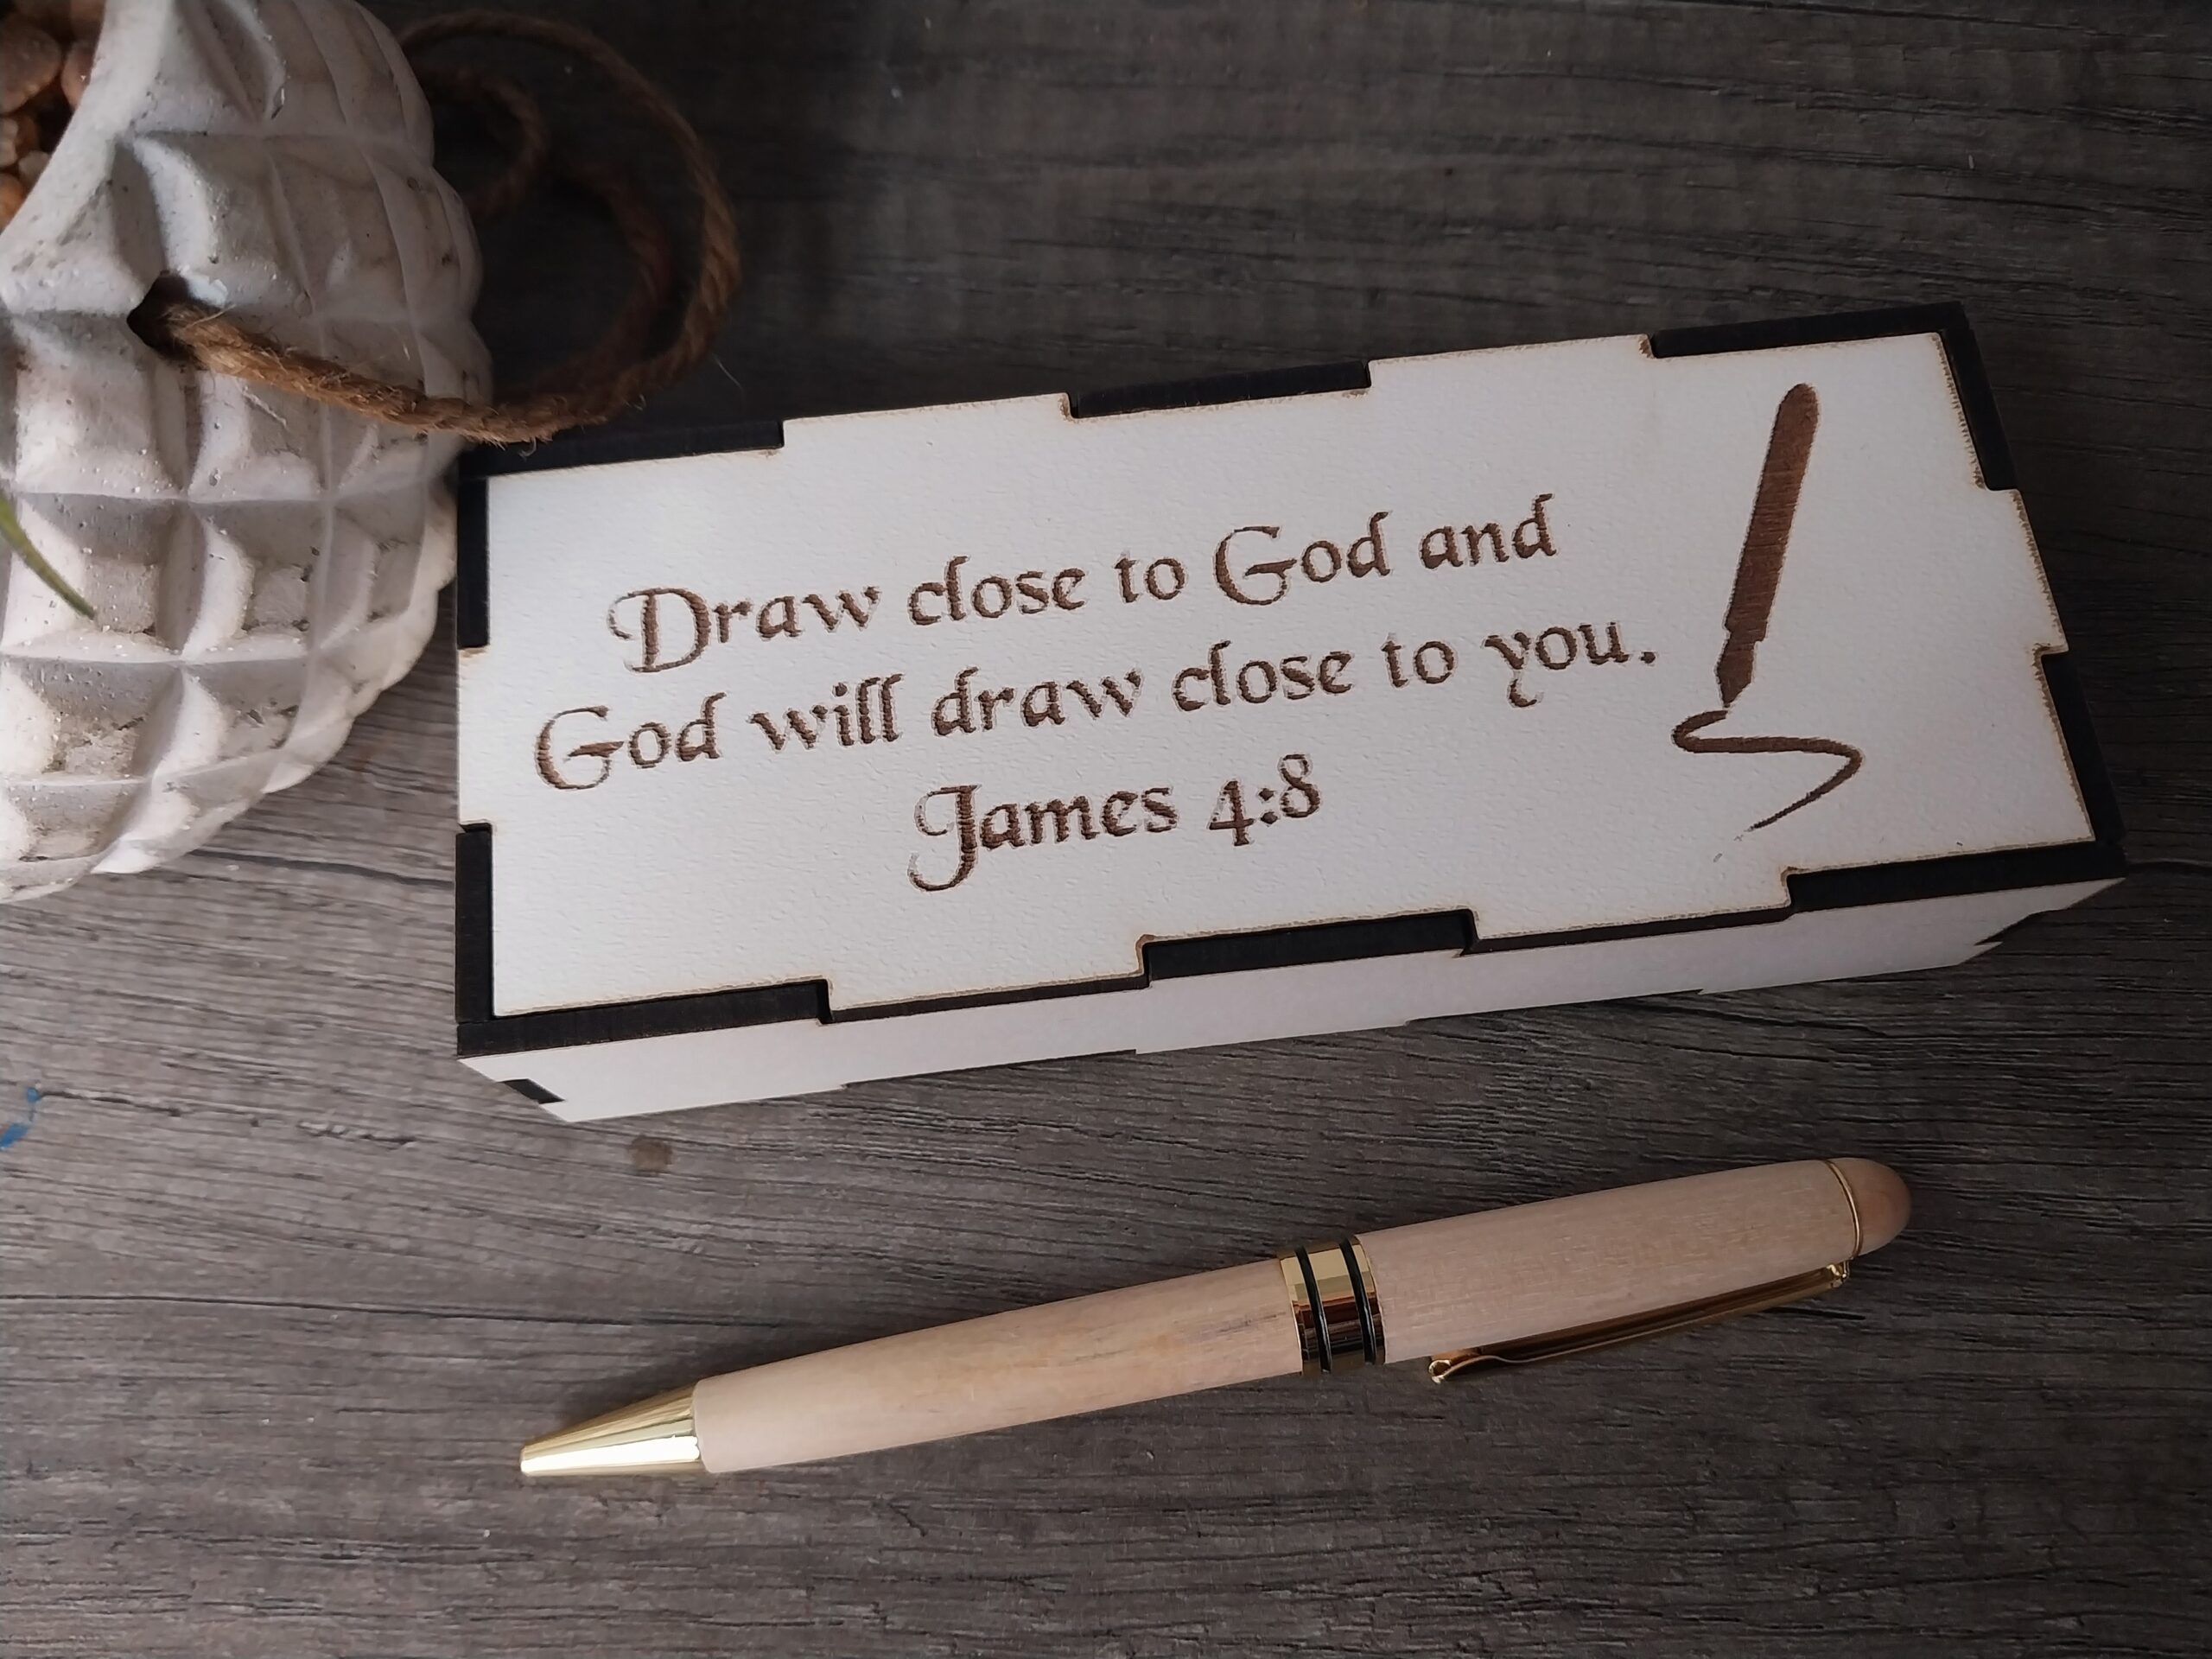 Draw close to God and
God will draw close to you.
James 4:8